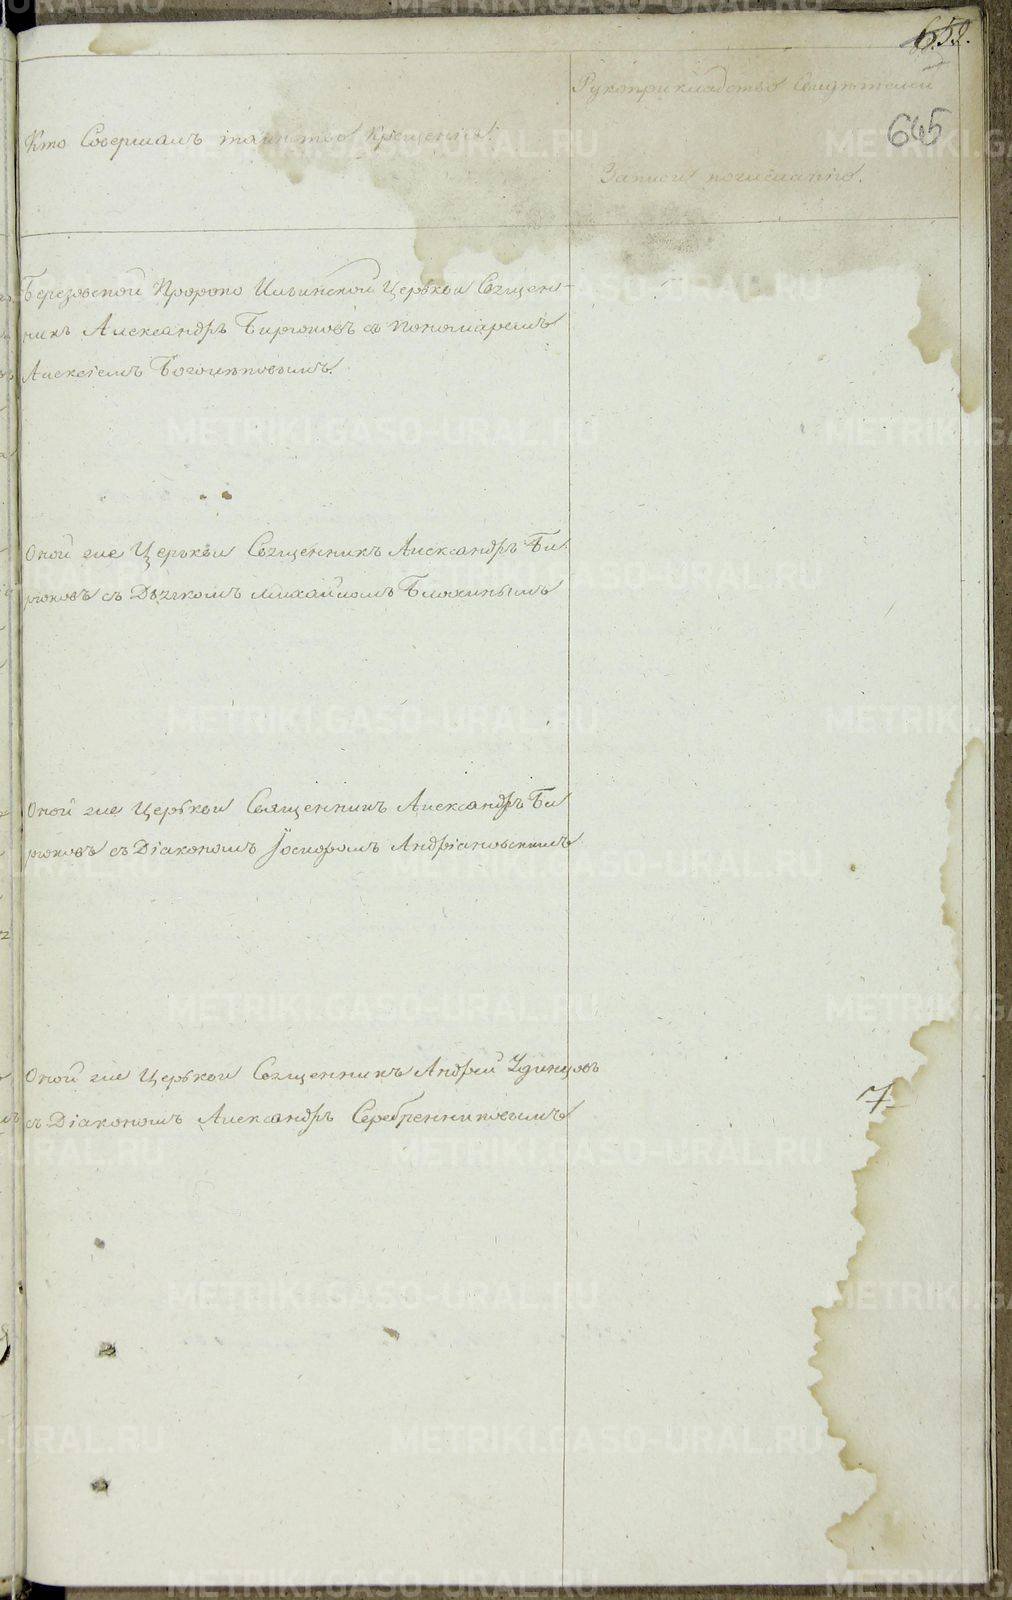 652.
665
Кто Совершалъ таинство крещенія.
Рукоприкладство свидѣтелей
Записи по желанію.
Березовской Пророко Ильинской Церькви Священ-
никъ Александръ Бирюковъ съ Пономаремъ
Алексіемъ
Оной же Церькви Священникъ Александръ Би
рюковъ съ Дьячкомъ Михайломъ Блохинымъ
Оной же Церькви Священникъ Александръ Би
рюковъ съ Діакономъ Андріановскимъ
Оной же Церькви Священникъ Андрей Удинцовъ
съ Діакономъ Александръ Серебренниковымъ
7
METRIKI.GASO-URAL.RU